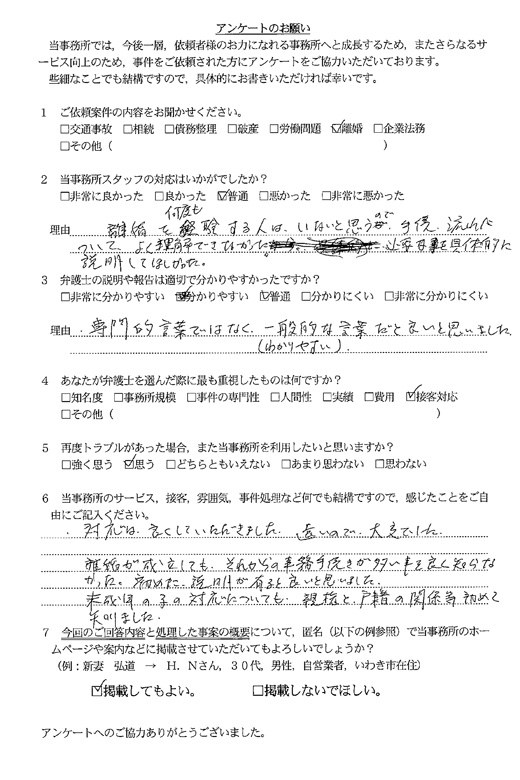 アンケートのお願い
当事務所では，今後一層，依頼者様のお力になれる事務所へと成長するため，またさらなるサ
ービス向上のため，事件をご依頼された方にアンケートをご協力いただいております。
些細なことでも結構ですので，具体的にお書きいただければ幸いです。
1 ご依頼案件の内容をお聞かせください。
□交通事故 □相続 □債務整理 □破産 □労働問題 ☑離婚 □企業法務
□その他（ ）
2 当事務所スタッフの対応はいかがでしたか？
□非常に良かった □良かった ☑普通 □悪かった □非常に悪かった
何度も
理由 離婚を経験する人は、いないと思うので、手続、流れに
ついて、よく理解できなかった 必要事を具体的に
説明してほしかった。
3 弁護士の説明や報告は適切で分かりやすかったですか？
□非常に分かりやすい □分かりやすい ☑普通 □分かりにくい □非常に分かりにくい
理由 ・専門的言葉ではなく、一般的な言葉だと良いと思いました
（わかりやすい）．
4 あなたが弁護士を選んだ際に最も重視したものは何ですか？
□知名度 □事務所規模 □事件の専門性 □人間性 □実績 □費用 ☑接客対応
□その他（ ）
5 再度トラブルがあった場合，また当事務所を利用したいと思いますか？
□強く思う ☑思う □どちらともいえない □あまり思わない □思わない
6 当事務所のサービス，接客，雰囲気，事件処理など何でも結構ですので，感じたことをご自
由にご記入ください。
・対応は、良くしていただきました。遠いので、大変でした。
離婚が成立しても、それからの事務手続きが多い事を良く知らな
かった。初めに、説明が有ると良いと思いました。
未成年の子の対応についても、親権と、戸籍の関係等初めて
知りました。
7 今回のご回答内容と処理した事案の概要について，匿名（以下の例参照）で当事務所のホー
ムページや案内などに掲載させていただいてもよろしいでしょうか？
（例：新妻 弘道 → H．Nさん，３０代，男性，自営業者，いわき市在住）
☑掲載してもよい。 □掲載しないでほしい。
アンケートへのご協力ありがとうございました。